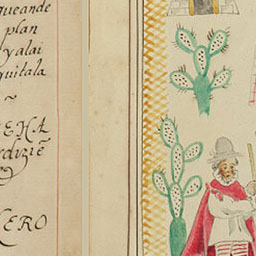 queande
plan
yalai
quitala
EHA
dizie
ERO